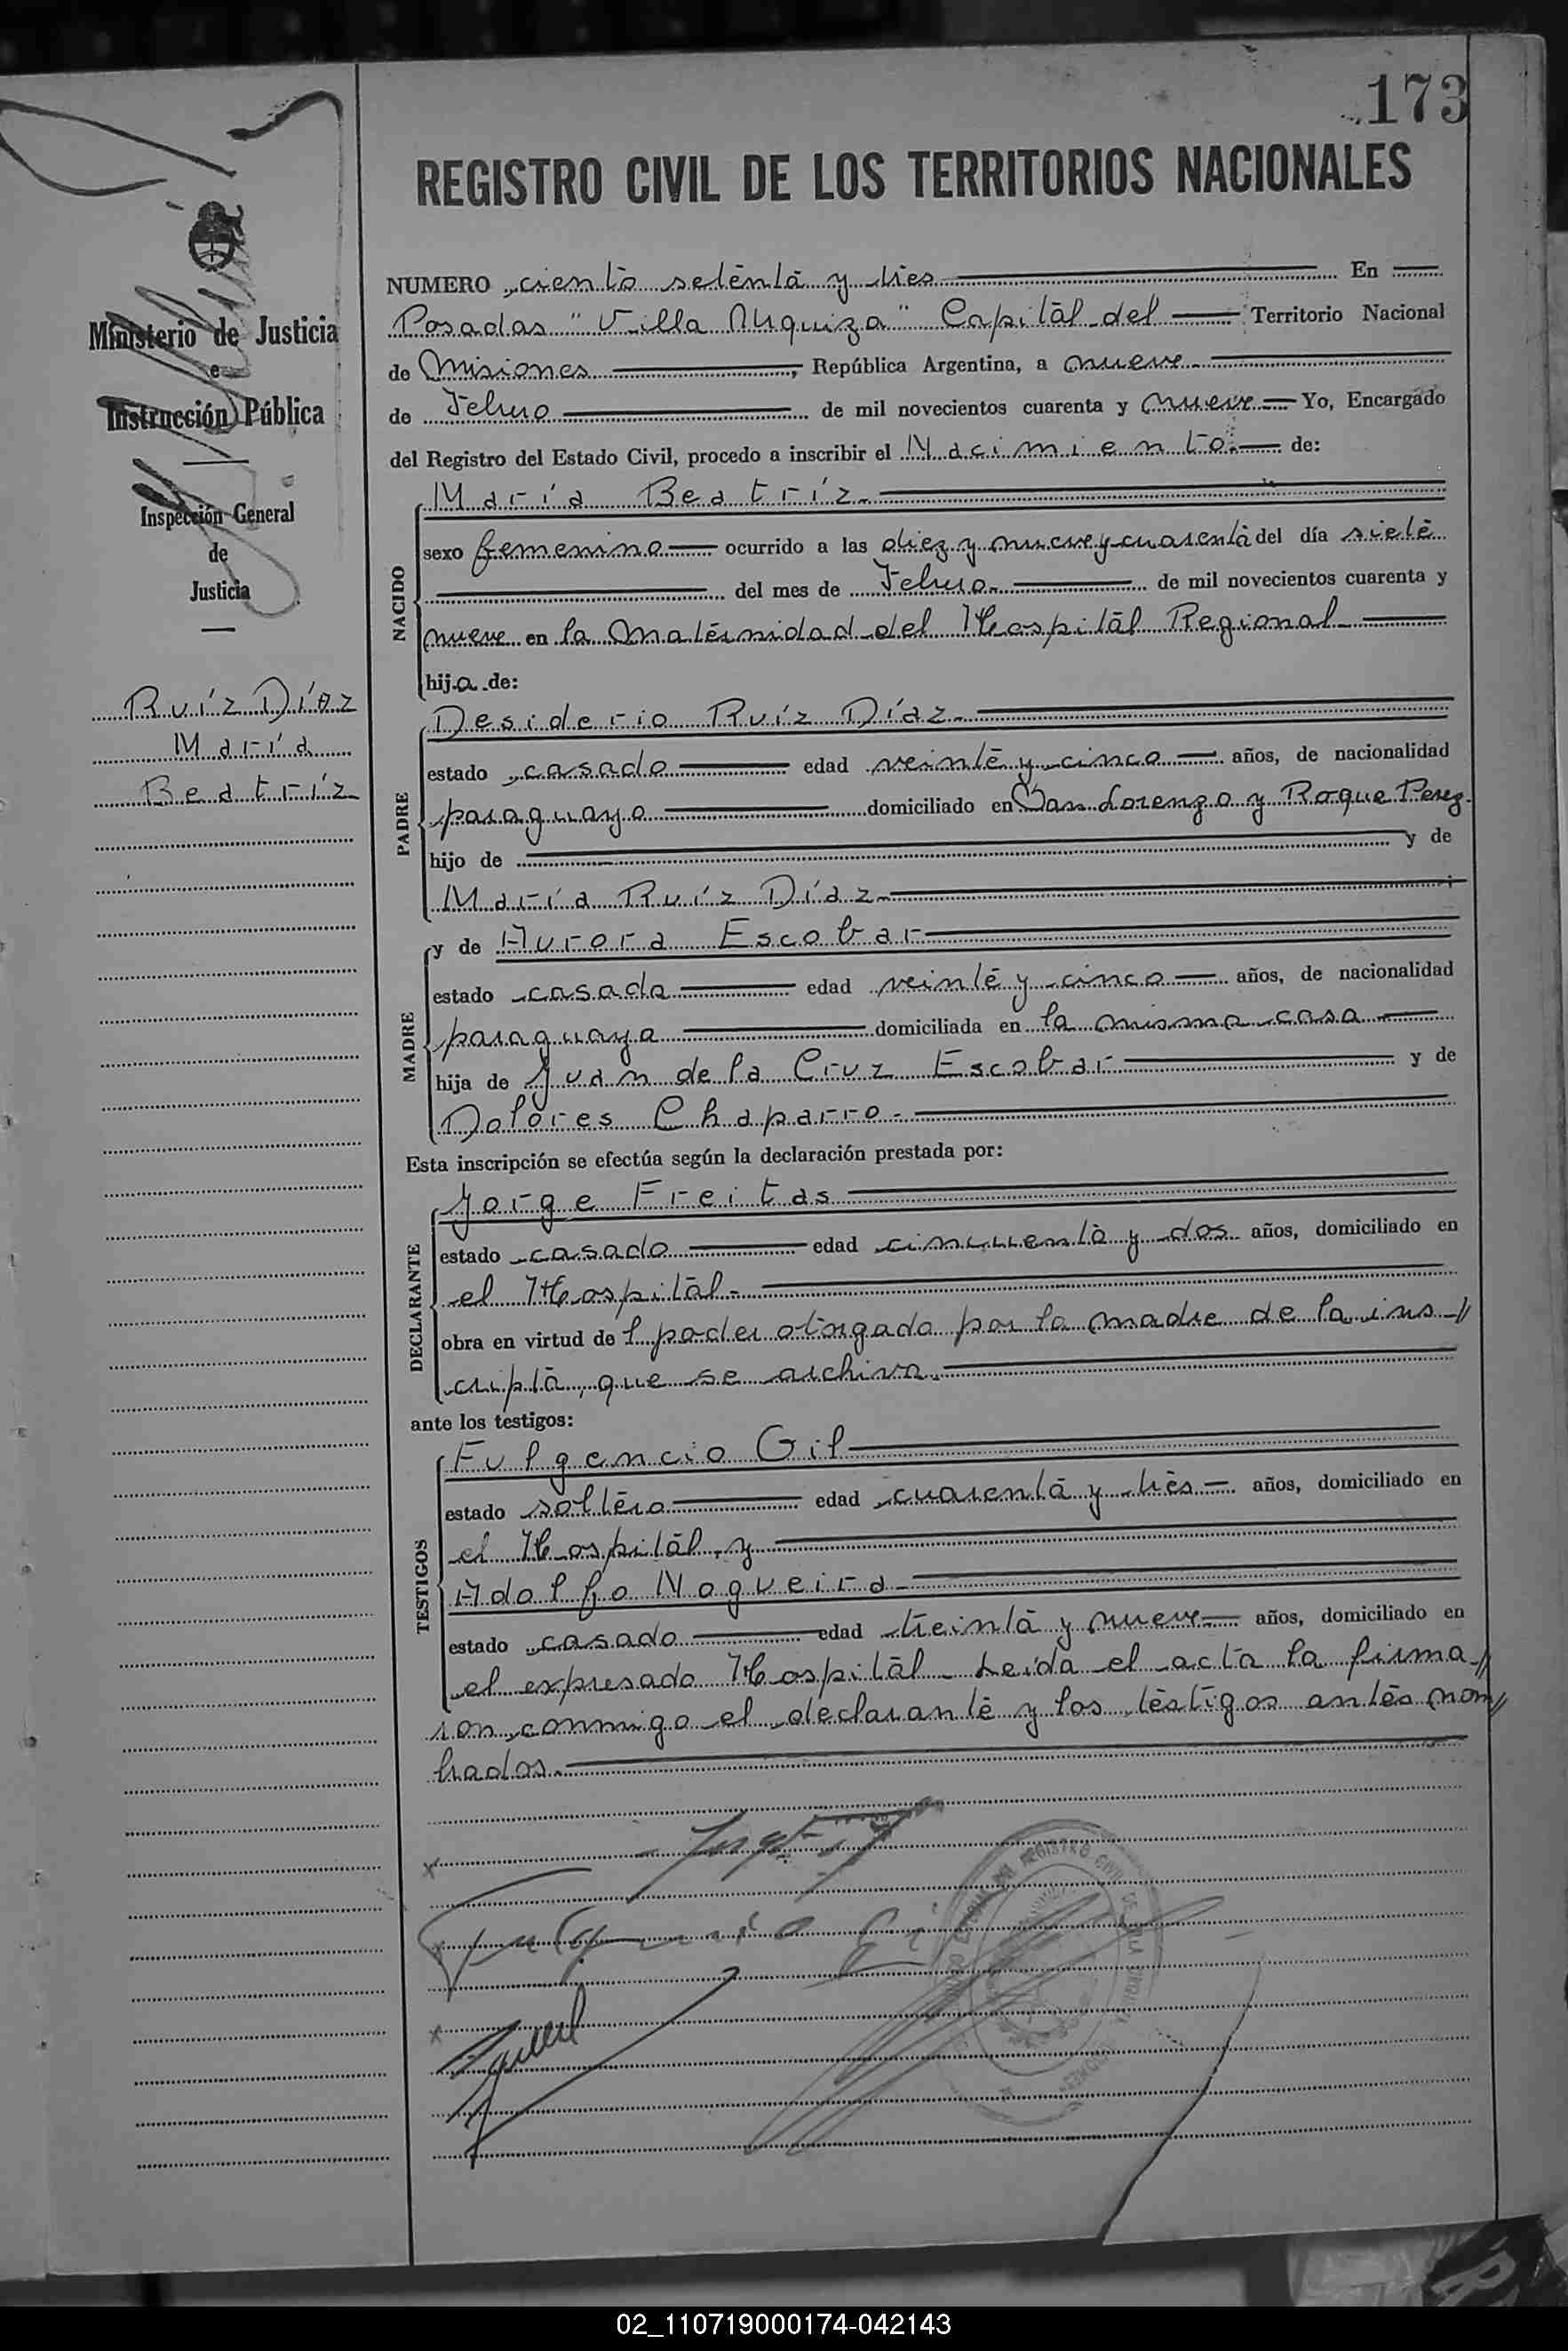 173
REGISTRO CIVIL DE LOS TERRITORIOS NACIONALES
Ministerio de Justicia
e
Instrucción Pública
Inspección General
de
Justicia
Ruíz Díaz
María
Beatríz
NUMERO ciento setenta y tres En
Posadas "Villa Urquiza" Capital del Territorio Nacional
de Misiones, República Argentina, a nueve
de Febrero de mil novecientos cuarenta y nueve Yo, Encargado
del Registro del Estado Civil, procedo a inscribir el Nacimiento.- de:
NACIDO
María Beatríz.-
sexo femenino ocurrido a las diez y nueve y cuarenta del día siete
del mes de Febrero.- de mil novecientos cuarenta y
nueve en la Maternidad del Hospital Regional
hija de:
PADRE
Desiderio Ruíz Díaz.-
estado casado edad veinte y cinco años, de nacionalidad
paraguayo domiciliado en San Lorenzo y Roque Perez.
hijo de y de
María Ruíz Díaz.-
MADRE
y de Aurora Escobar
estado casada edad veinte y cinco años, de nacionalidad
paraguaya domiciliada en la misma casa
hija de Juan de la Cruz Escobar y de
Dolores Chaparro.-
Esta inscripción se efectúa según la declaración prestada por:
DECLARANTE
Jorge Freitas
estado casado edad cincuenta y dos años, domiciliado en
el Hospital.-
obra en virtud de l poder otorgado por la madre de la ins-//
cripta, que se archiva.-
ante los testigos:
TESTIGOS
Fulgencio Gil
estado soltero edad cuarenta y tres años, domiciliado en
el Hospital, y
Adolfo Nogueira-
estado casado edad treinta y nueve.- años, domiciliado en
el expresado Hospital - Leída el acta la firma-//
ron conmigo el declarante y los testigos antes nom//
brados.-
Fulgencio Gil
02_110719000174-042143